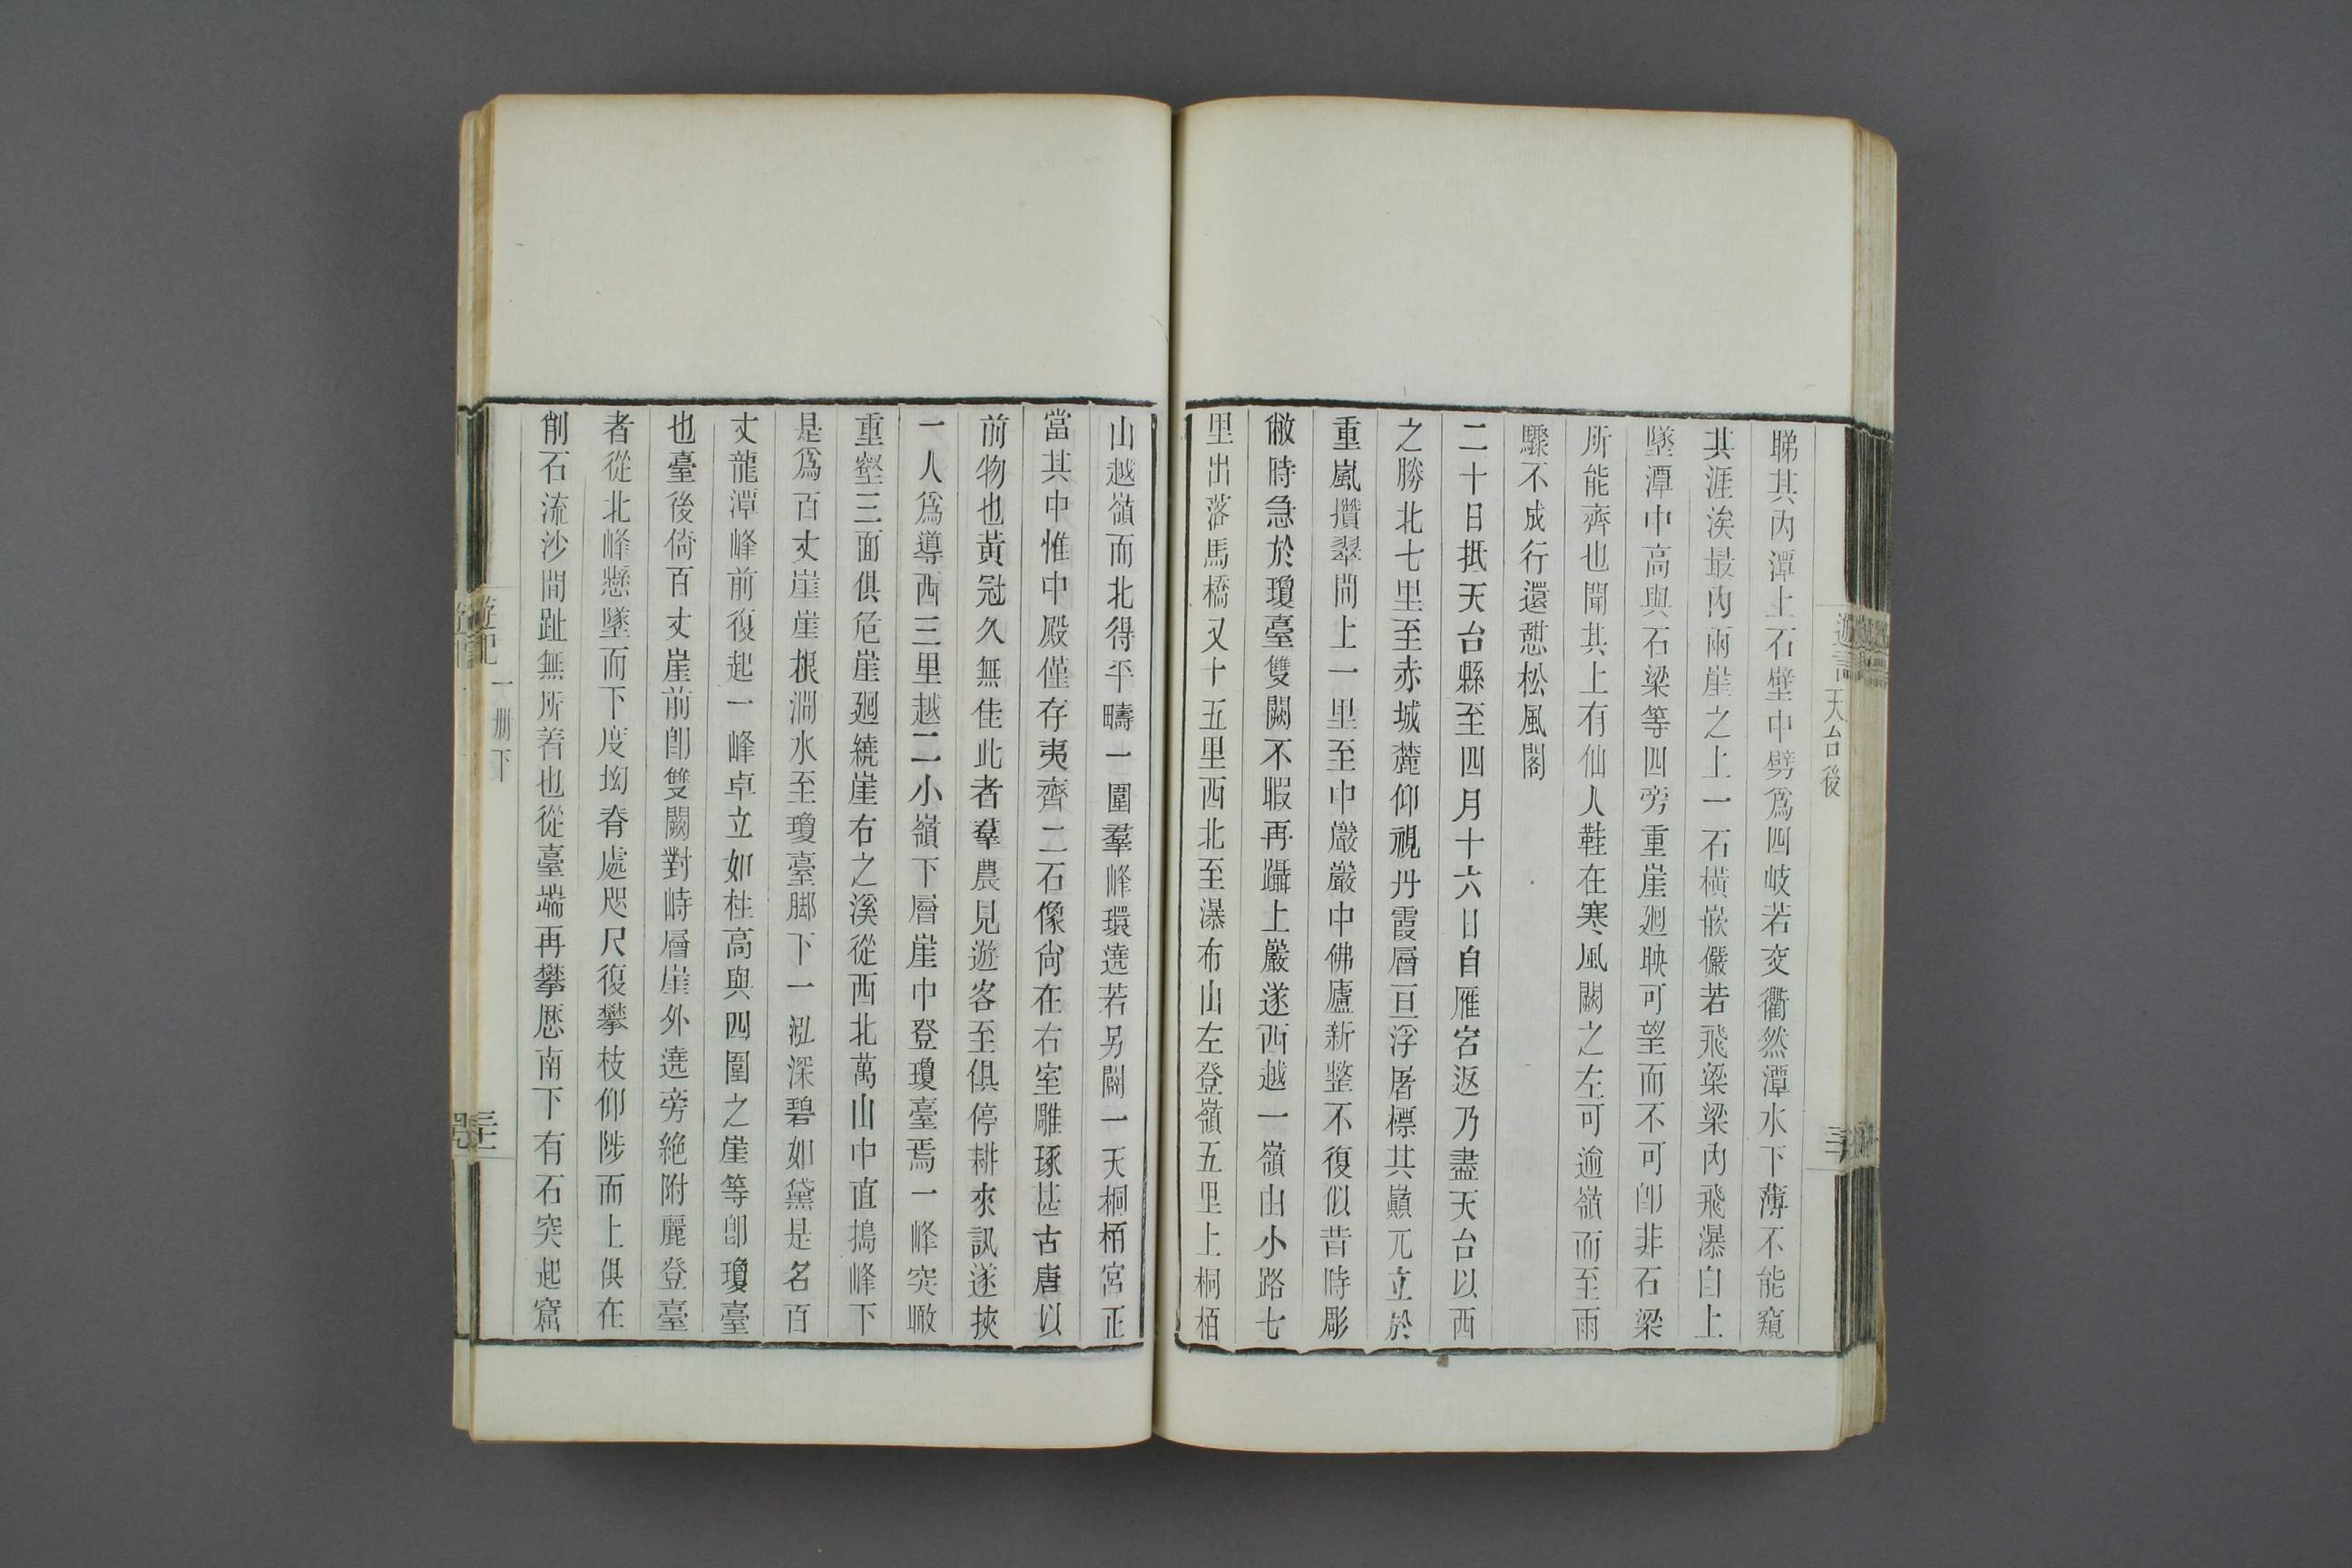 遊記
天台後
三十
睇其內潭上石壁中劈爲四岐若交衢然潭水下薄不能窺
其涯涘最內兩崖之上一石橫嵌儼若飛梁梁內飛瀑自上
墜潭中高與石梁等四旁重崖廻映可望而不可卽非石梁
所能齊也聞其上有仙人鞋在寒風闕之左可逾嶺而至雨
驟不成行還憇松風閣
二十日抵天台縣至四月十六日自雁宕返乃盡天台以西
之勝北七里至赤城麓仰視丹霞層亘浮屠標其巔兀立於
重嵐攢翠間上一里至中巖巖中佛廬新整不復似昔時彫
敝時急於瓊臺雙闕不暇再躡上巖遂西越一嶺由小路七
里出落馬橋又十五里西北至瀑布山左登嶺五里上桐栢
山越嶺而北得平疇一圍羣峰環遶若另闢一天桐栢宮正
當其中惟中殿僅存夷齊二石像尙在右室雕琢甚古唐以
前物也黃冠久無住此者羣農見遊客至俱停耕來訊遂挾
一人爲導西三里越二小嶺下層崖中登瓊臺焉一峰突瞰
重壑三面俱危崖廻繞崖右之溪從西北萬山中直搗峰下
是爲百丈崖崖根澗水至瓊臺脚下一泓深碧如黛是名百
丈龍潭峰前復起一峰卓立如柱高與四圍之崖等卽瓊臺
也臺後倚百丈崖前卽雙闕對峙層崖外遶旁絶附麗登臺
者從北峰懸墜而下度坳脊處咫尺復攀枝仰陟而上俱在
削石流沙間趾無所着也從臺端再攀厯南下有石突起窟
遊記
一册下